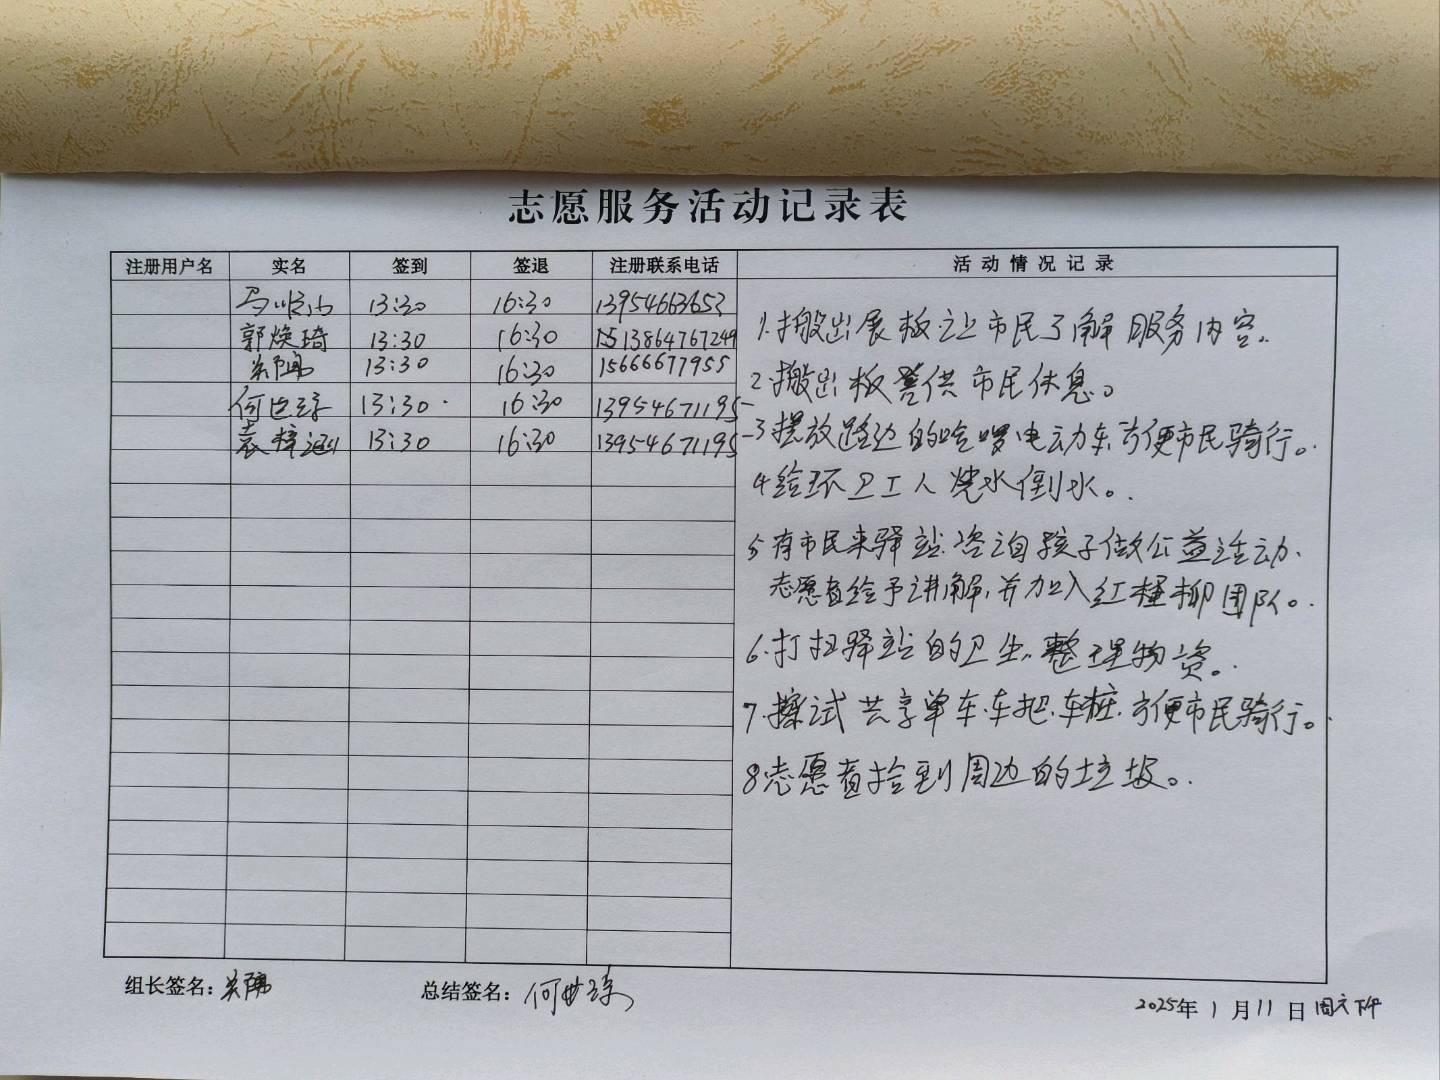 志愿服务活动记录表
注册用户名 实名 签到 签退 注册联系电话 活动情况记录
13:30 16:30 13954663653
郭焕琦 13:30 16:30 13864767249
13:30 16:30 15666677955
何 13:30 16:30 13954671195
袁梓涵 13:30 16:30 13954671195
1.搬出展板让市民了解服务内容。
2.搬出板凳供市民休息。
3摆放路边的哈啰电动车,方便市民骑行。
4给环卫工人烧水倒水。
5有市民来驿站咨询孩子做公益活动,
志愿者给予讲解,并加入红柽柳团队。
6.打扫驿站的卫生,整理物资。
7.擦试共享单车,车把,车桩,方便市民骑行。
8志愿者捡到周边的垃圾。
组长签名: 总结签名:何
2025年1月11日周六下午